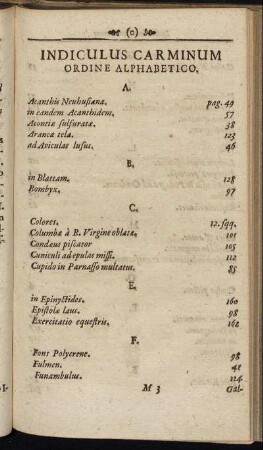 (o)
INDICULUS CARMINUM
ORDINE ALPHABETICO.
A.
Acanthis Neuhusiana. pag. 49
in eandem Acanthidem. 57
Acontia sulfurata. 38
Aranea tela. 123
ad Aviculas lusus. 46
B.
in Blattam. 128
Bombyx. 97
C.
Colores. 12. sqq.
Columba à B. Virgine oblata. 101
Condæus piscator 105
Cuniculi ad epulas missi. 112
Cupido in Parnasso multatus. 85
E.
in Epinyctides. 160
Epistolæ laus. 98
Exercitatio equestris. 162
F.
Fons Polycrene. 98
Fulmen. 48
Funambulus. 124
M 3 Gal-